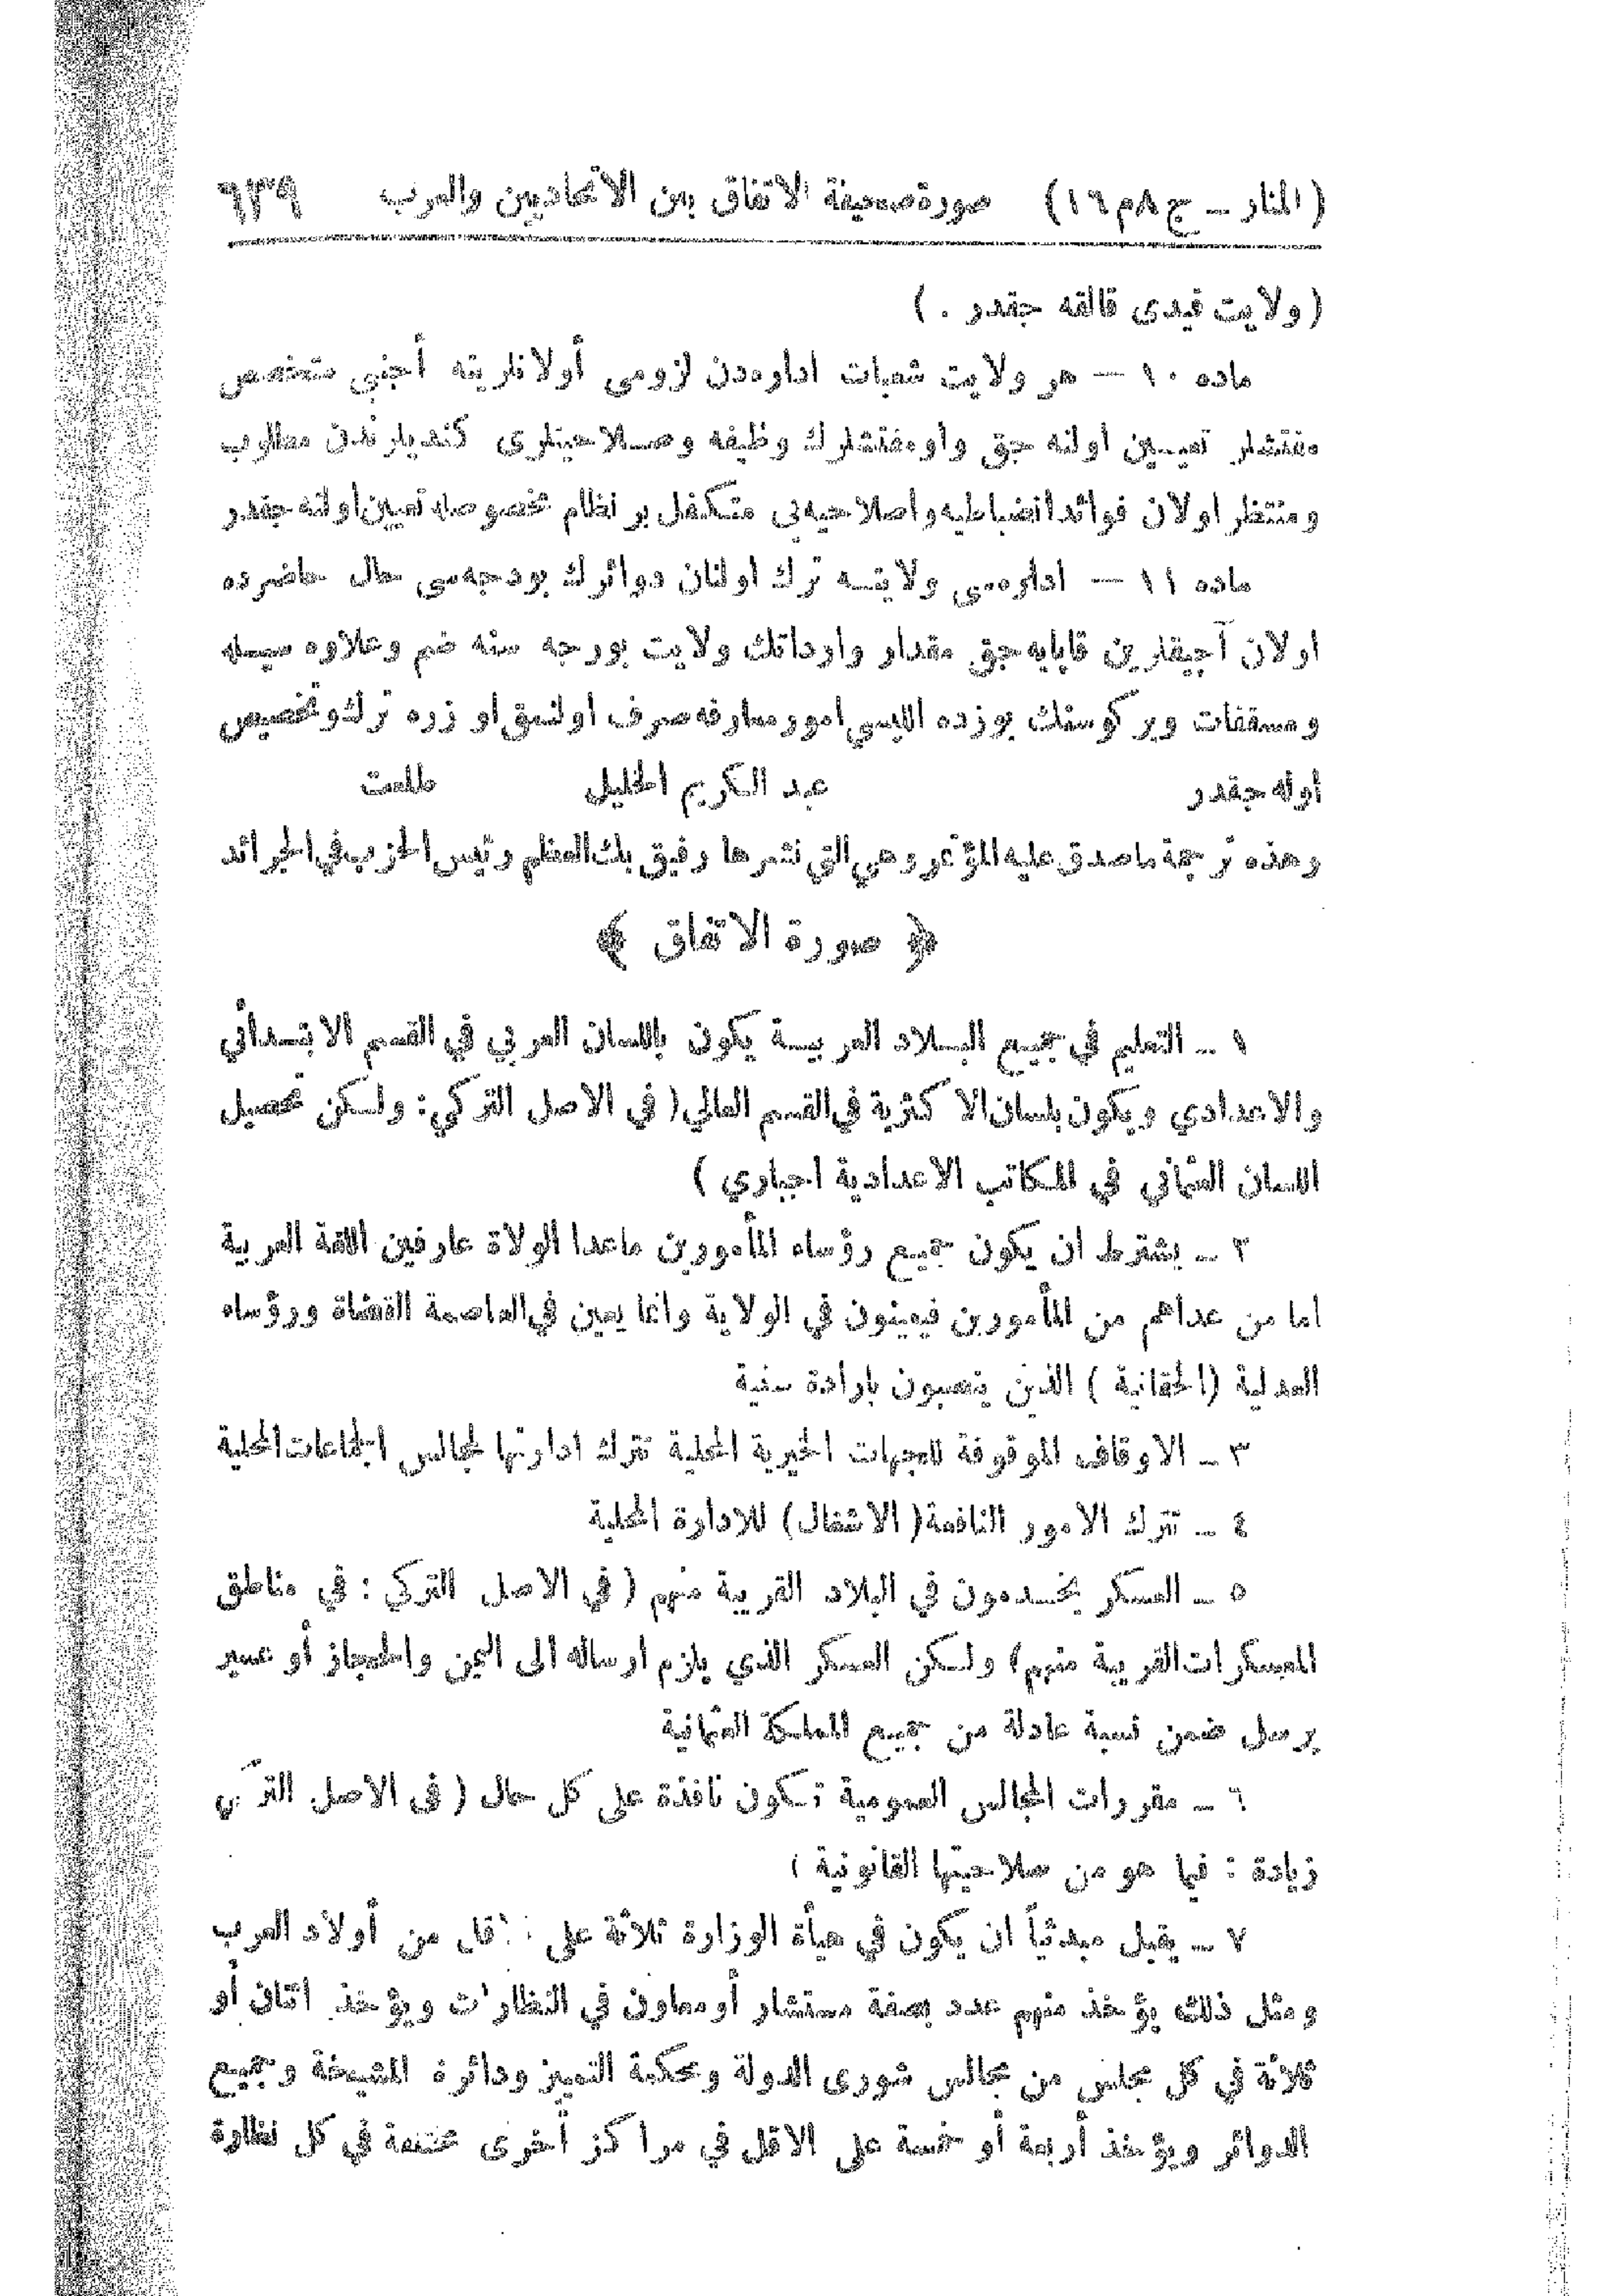 (المنار ــ ج٨م١٦) صورة صحيفة الاتفاق بين الاتحاديين والعرب ٦٣٩
(ولايت قيدى قالقه جقدر . )
ماده ١٠ — هر ولايت شعبات اداره‌دن لزومى أولانلرينه أجنبي متخصص
مفتشلر تعيـين اولنه جق واومفتشلرك وظيفه وصـلاحيتلرى كنديلرندن مطلوب
ومنتظر اولان فوائدانضباطيه واصلاحيه‌ني متـكفل بر نظام مخصوصله تعيين اولنه جقدر
ماده ١١ — اداره‌سي ولايتـه ترك اولنان دوائرك بودجه‌سى حال حاضرده
اولان آجيقلرين قاپايه جق مقدار وارداتك ولايت بورجه سنه ضم وعلاوه سيـله
ومسقفات ويركوسنك يوزده الليسي امورمعارفه صرف اولنمق او زره ترك وتخصيص
أوله جقدر عبد الكريم الخليل طلعت
وهذه ترجمة ماصدق عليه المؤتمر وهي التي نشرها رفيق بك العظم رئيس الحزب في الجرائد
﴿ صورة الاتفاق ﴾
١ ــ التعليم في جميـع البـلاد العربيـة يكون باللسان العربي في القسم الابتـدائي
والاعدادي ويكون بلسان الاكثرية في القسم العالي ( في الاصل التركي : ولـكن تحصيل
اللسان العثماني في المكاتب الاعدادية اجباري )
٢ ــ يشترط ان يكون جميـع رؤساء المأمورين ماعدا الولاة عارفين اللغة العربية
اما من عداهم من المأمورين فيعينون في الولاية وانما يعين في العاصمة القضاة ورؤساء
العدلية (الحقانية ) الذين ينصبون بارادة سنية
٣ ــ الاوقاف الموقوفة للجهات الخيرية المحلية تترك ادارتها لمجالس الجماعات المحلية
٤ ــ تترك الامور النافعة ( الاشغال ) للادارة المحلية
٥ ــ العسكر يخـدمون في البلاد القريبة منهم ( في الاصل التركي : في مناطق
المعسكرات القريبة منهم ) ولـكن العسكر الذي يلزم ارساله الى اليمن والحجاز أو عسير
يرسل ضمن نسبة عادلة من جميـع المملكة العثمانية
٦ ــ مقررات المجالس العمومية تـكون نافذة على كل حال ( في الاصل التركي
زيادة : فيما هو من صلاحيتها القانونية )
٧ ــ يقبل مبدئياً ان يكون في هيأة الوزارة ثلاثة على الاقل من أولاد العرب
ومثل ذلك يؤخذ منهم عدد بصفة مستشار أومعاون في النظارات ويؤخذ اثنان أو
ثلاثة في كل مجلس من مجالس شورى الدولة ومحكمة التمييز ودائرة المشيخة وجميـع
الدوائر ويؤخذ أربعة أو خمسة على الاقل في مراكز أخرى مختلفة في كل نظارة